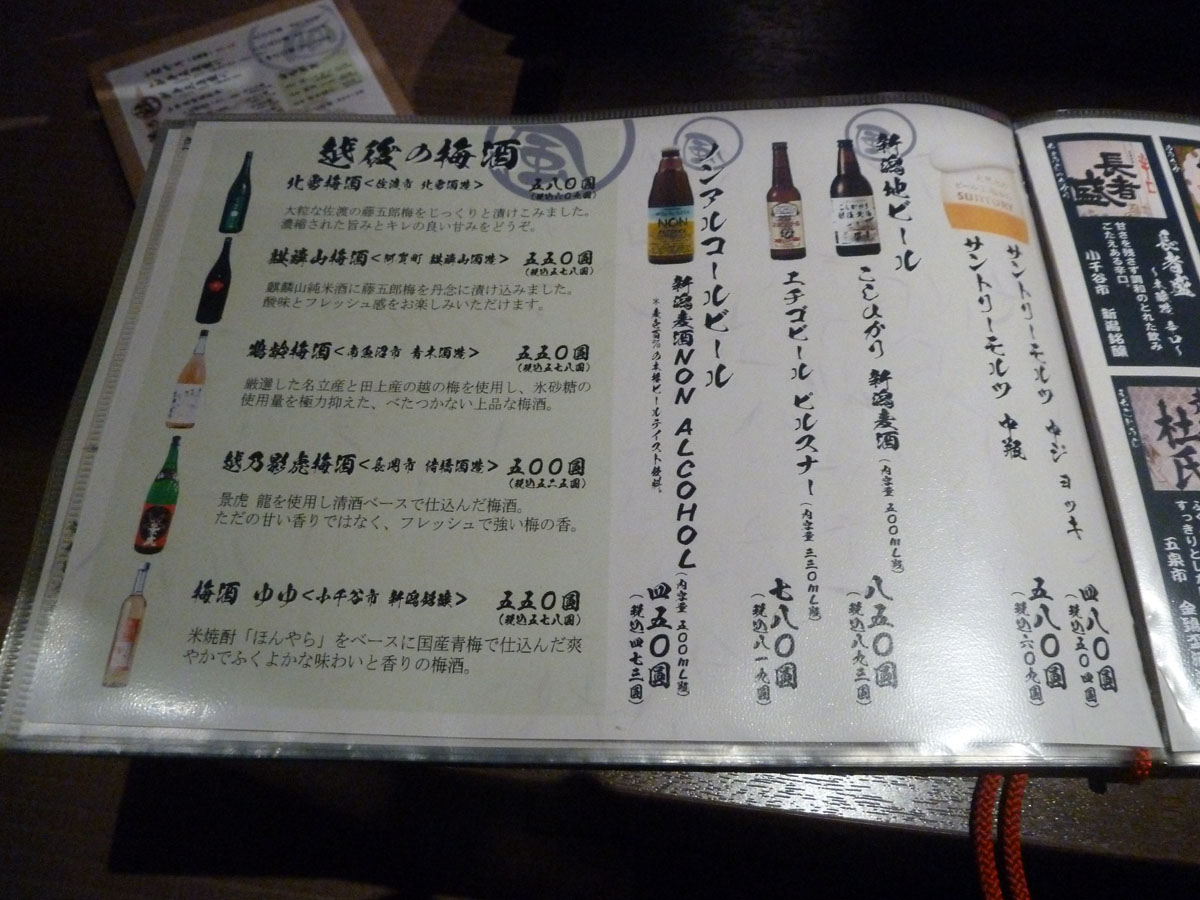 越後の梅酒
北雪梅酒<佐渡市 北雪酒造> 五八〇圓
(税込六〇九圓)
大粒な佐渡の藤五郎梅をじっくりと漬けこみました。
濃縮された旨みとキレの良い甘みをどうぞ。
麒麟山梅酒<阿賀町 麒麟山酒造> 五五〇圓
(税込五七八圓)
麒麟山純米酒に藤五郎梅を丹念に漬け込みました。
酸味とフレッシュ感をお楽しみいただけます。
鶴齢梅酒<南魚沼市 青木酒造> 五五〇圓
(税込五七八圓)
厳選した名立産と田上産の越の梅を使用し、氷砂糖の
使用量を極力抑えた、べたつかない上品な梅酒。
越乃影虎梅酒<長岡市 諸橋酒造> 五〇〇圓
(税込五二五圓)
景虎 龍を使用し清酒ベースで仕込んだ梅酒。
ただの甘い香りではなく、フレッシュで強い梅の香。
梅酒 ゆゆ<小千谷市 新潟銘醸> 五五〇圓
(税込五七八圓)
米焼酎「ほんやら」をベースに国産青梅で仕込んだ爽
やかでふくよかな味わいと香りの梅酒。
サントリーモルツ 中ジョッキ 四八〇圓
(税込五〇四圓)
サントリーモルツ 中瓶 五八〇圓
(税込六〇九圓)
SUNTORY
新潟地ビール
こしひかり 新潟麦酒(内容量 五〇〇mL瓶) 八五〇圓
(税込八九三圓)
エチゴビール ピルスナー(内容量 三三〇mL瓶) 七八〇圓
(税込八一九圓)
ノンアルコールビール
NON
新潟麦酒NON ALCOHOL(内容量 五〇〇mL瓶) 四五〇圓
(税込四七三圓)
※麦芽100%の本格ビールテイスト飲料。
長者盛
長者盛
〜本醸造 辛口〜
甘さを残さず調和のとれた飲み
ごたえある辛口。
小千谷市 新潟銘醸
杜氏
すっきりとし
五泉市